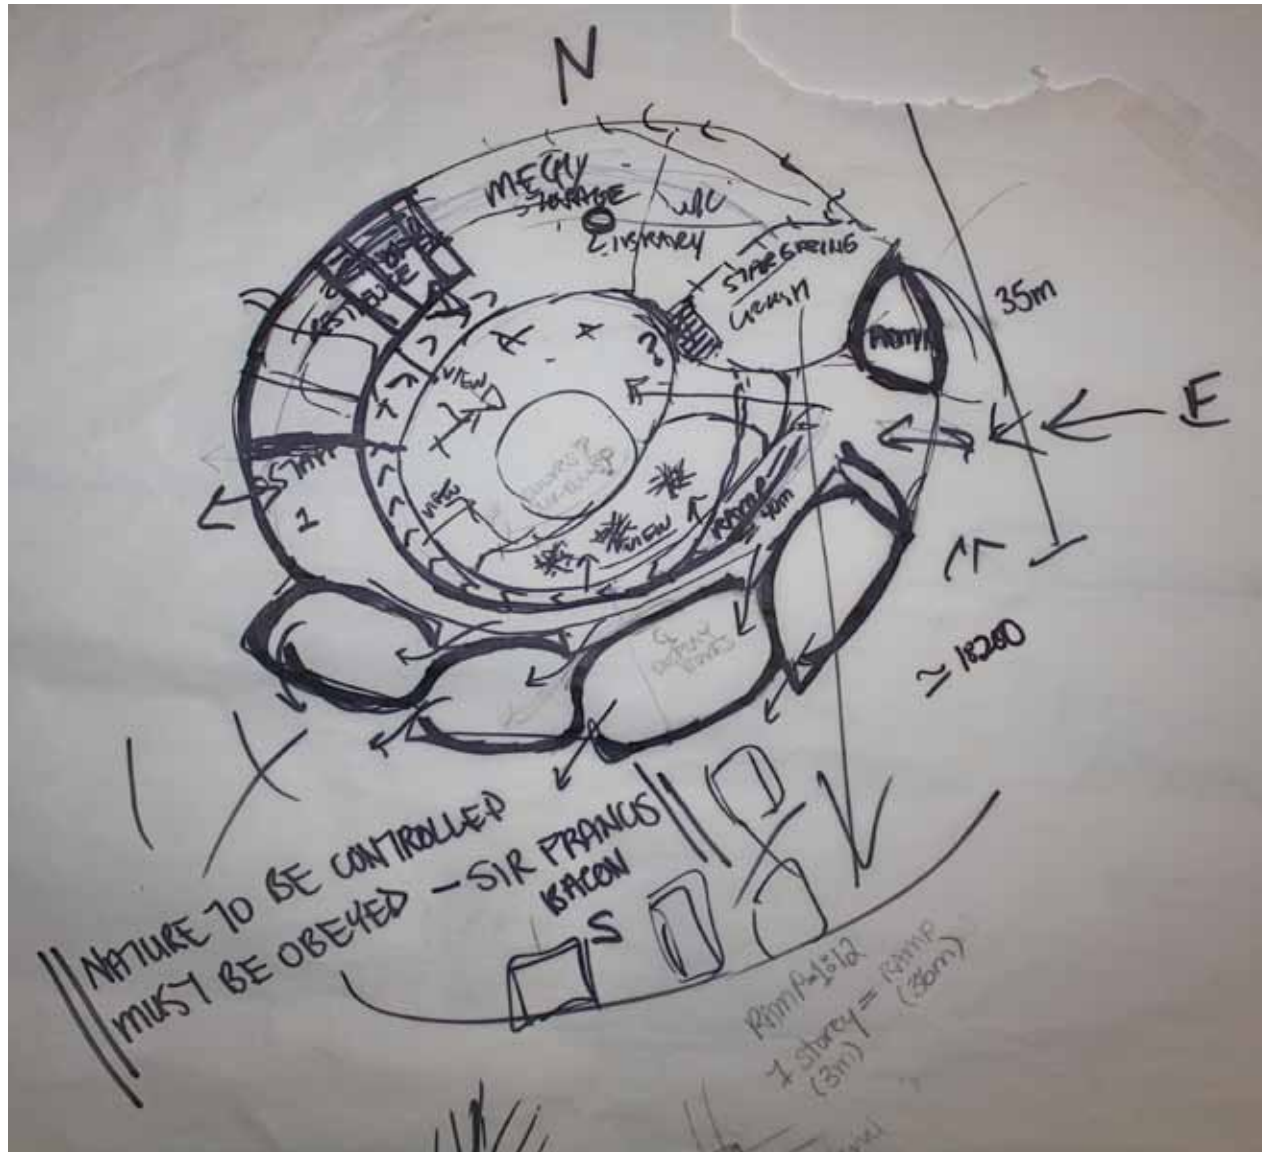 N
MECH
STORAGE
LIBRARY
STARGAZING
RAMP
35m
E
VIEW
VIEW
VIEW
RAMP
40m
1
DISPLAY
≃ 18200
NATURE TO BE CONTROLLED
MUST BE OBEYED - SIR FRANCIS
BACON
S
RAMP = 1:12
1 storey = RAMP
(3m) (36m)